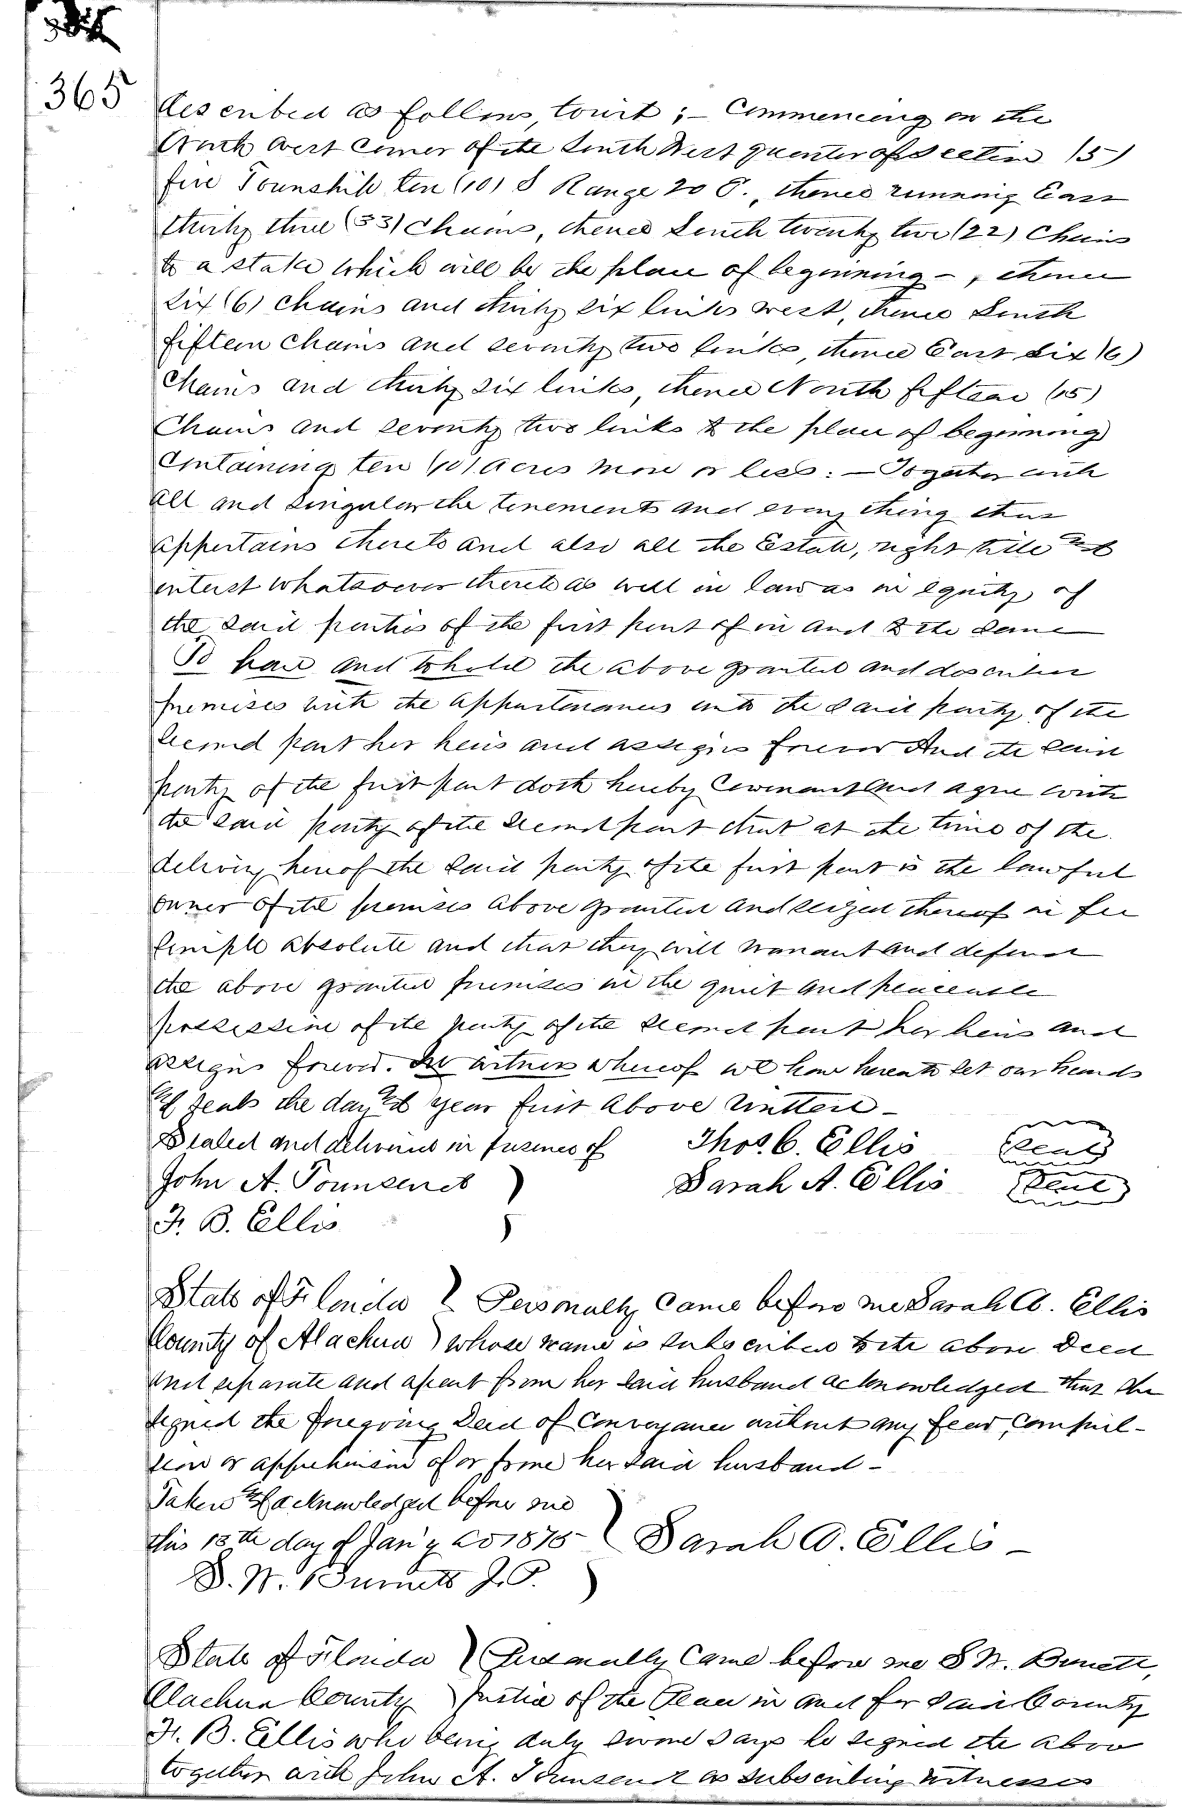 365
described as follows, towit ; – Commencing on the
North West Corner of the South West quarter of Section (5)
five Township ten (10) S Range 20 E., thence running East
thirty three (33) Chains, thence South twenty two (22) Chains
to a stake which will be the place of beginning – , thence
six (6) chains and thirty six links west, thence South
fifteen Chains and seventy two links, thence East six (6)
Chains and thirty six links, thence North fifteen (15)
Chains and seventy two links to the place of beginning
Containing ten (10) acres more or less : – Together with
all and singular the tenements and every thing that
appertains thereto and also all the Estate, right title and
interest whatsoever thereto as well in law as in equity of
the said parties of the first part of in and to the same
To have and to hold the above granted and described
premises with the appurtenances unto the said party of the
second part her heirs and assigns forever And the said
party of the first part doth hereby Covenant and agree with
the said party of the second part that at the time of the
delivery hereof the said party of the first part is the lawful
owner of the premises above granted and seized thereof in fee
simple absolute and that they will warrant and defend
the above granted premises in the quiet and peaceable
possession of the party of the second part her heirs and
assigns forever. In witness whereof we have hereunto set our hands
and seals the day and year first above written –
Sealed and delivered in presence of Thos. C. Ellis Seal
John A. Townsend ) Sarah A. Ellis Seal
F. B. Ellis )
State of Florida } Personally came before me Sarah A. Ellis
County of Alachua ) whose name is subscribed to the above Deed
and separate and apart from her said husband acknowledged that she
signed the foregoing Deed of Conveyance without any fear, compul-
sion or apprehension of or from her said husband –
Taken and acknowledged before me
this 13th day of Jan'y AD 1875 } Sarah A. Ellis –
S. W. Burnett J. P. )
State of Florida ) Personally came before me S W. Burnett,
Alachua County ) Justice of the Peace in and for said County
F. B. Ellis who being duly sworn says he signed the above
together with John A. Townsend as subscribing witnesses